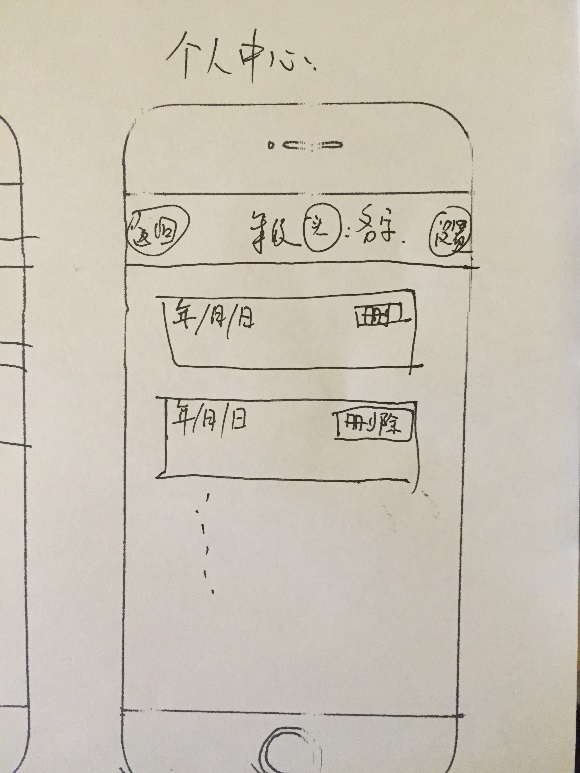 个人中心
返回 年级 头 : 名字 设置
年/月/日 删
年/月/日 删除